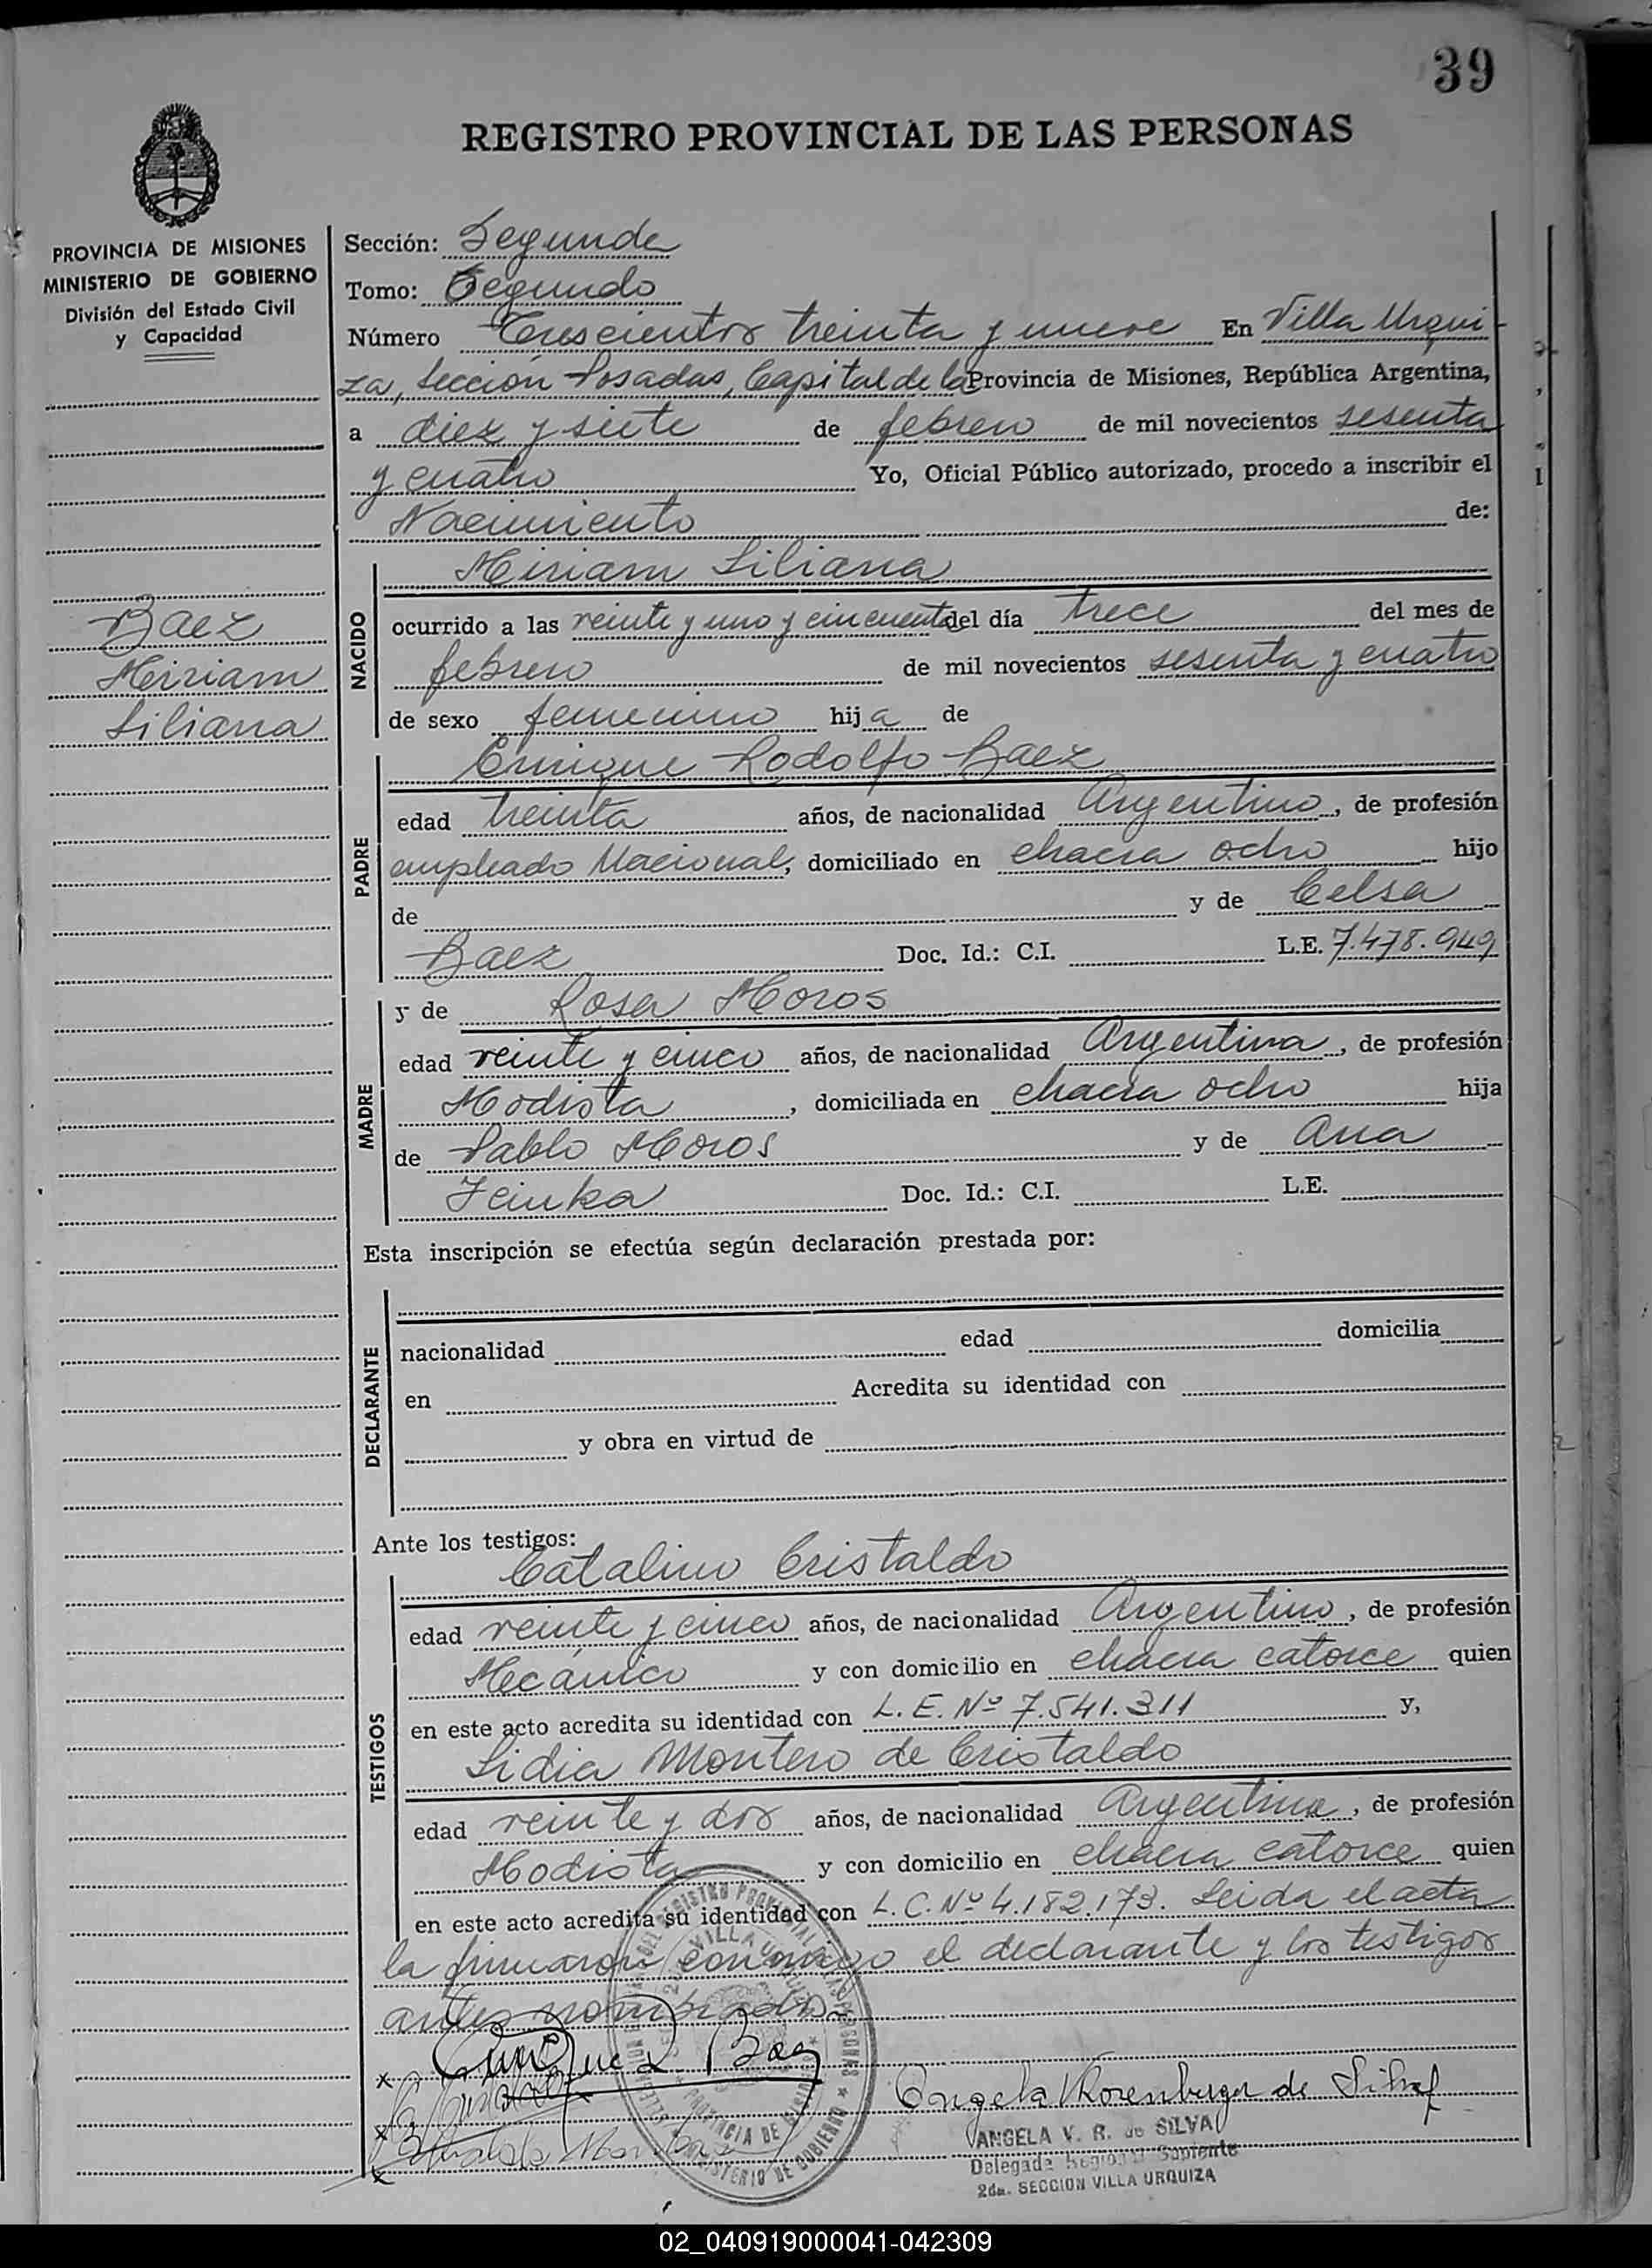 39
REGISTRO PROVINCIAL DE LAS PERSONAS
PROVINCIA DE MISIONES
MINISTERIO DE GOBIERNO
División del Estado Civil
y Capacidad
Baez
Miriam
Liliana
Sección: Segunda
Tomo: Segundo
Número Trescientos treinta y nueve En Villa Urqui-
za, Sección Posadas, Capital de la Provincia de Misiones, República Argentina,
a diez y siete de febrero de mil novecientos sesenta
y cuatro Yo, Oficial Público autorizado, procedo a inscribir el
Nacimiento de:
NACIDO
Miriam Liliana
ocurrido a las veinte y uno y cincuenta del día trece del mes de
febrero de mil novecientos sesenta y cuatro
de sexo femenino hija de
PADRE
Enrique Rodolfo Baez
edad treinta años, de nacionalidad Argentino, de profesión
empleado Nacional, domiciliado en chacra ocho hijo
de y de Celsa
Baez Doc. Id.: C.I. L.E. 7.478.949
MADRE
y de Rosa Moros
edad veinte y cinco años, de nacionalidad Argentina, de profesión
Modista, domiciliada en chacra ocho hija
de Pablo Moros y de Ana
Doc. Id.: C.I. L.E.
Esta inscripción se efectúa según declaración prestada por:
DECLARANTE
nacionalidad edad domicilia
en Acredita su identidad con
y obra en virtud de
Ante los testigos:
TESTIGOS
Catalino Cristaldo
edad veinte y cinco años, de nacionalidad Argentino, de profesión
Mecánico y con domicilio en chacra catorce quien
en este acto acredita su identidad con L.E. Nº 7.541.311 y,
Lidia Montero de Cristaldo
edad veinte y dos años, de nacionalidad Argentina, de profesión
Modista y con domicilio en chacra catorce quien
en este acto acredita su identidad con L.C. Nº 4.182.173. Leida el acta
la firmaron conmigo el declarante y los testigos
antes nombrados
Enrique R. Baez
Angela Rosenberger de Silva
ANGELA V. R. de SILVA
Delegada Regional Suplente
2da. SECCION VILLA URQUIZA
02_040919000041-042309